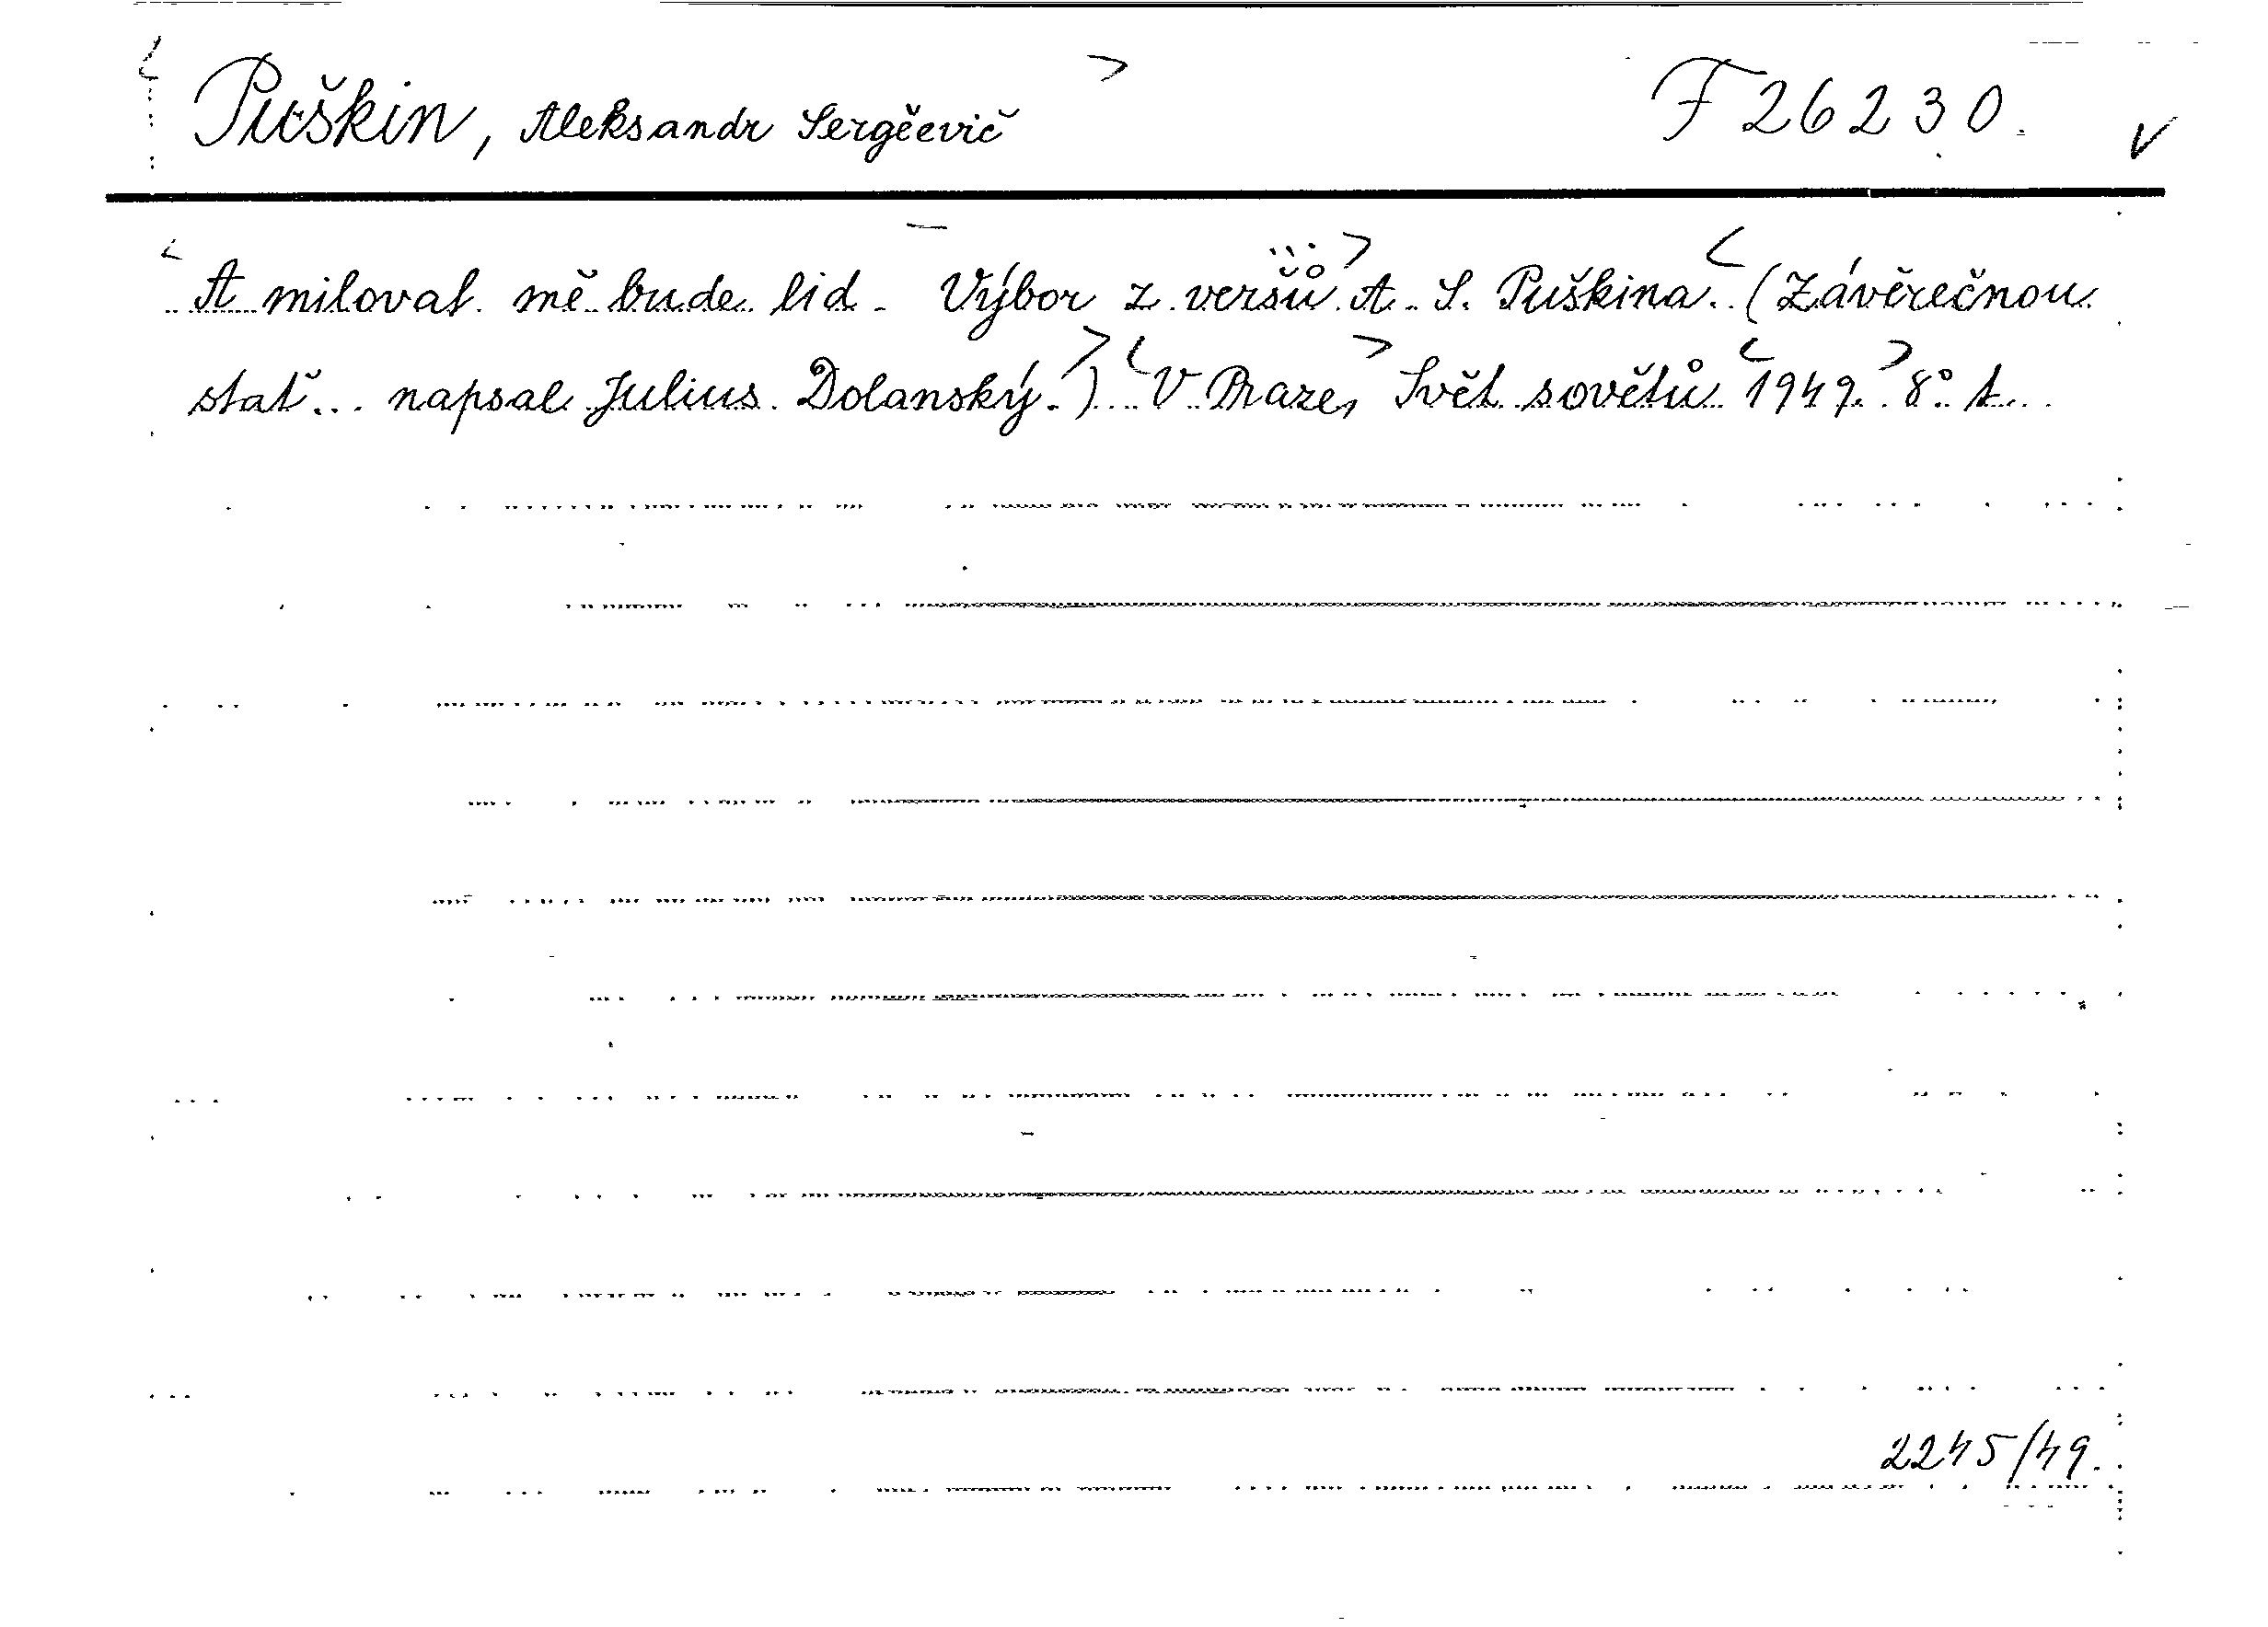 Puškin, Aleksandr Sergěevič F 26230.
A milovat mě bude lid. Výbor z veršů A. S. Puškina. (Závěrečnou
stať... napsal Julius Dolanský.) V Praze, Svět sovětů 1949. 8° t.
2245/49.